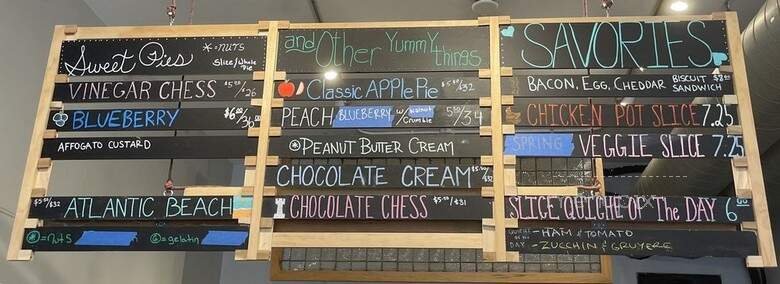 Sweet Pies *=nuts
Slice/Whole Pie
VINEGAR CHESS $5.00/26
BLUEBERRY $6.00/36.00
AFFOGATO CUSTARD
$5.50/$32 ATLANTIC BEACH
=nuts =gelatin
and Other Yummy things
Classic APPLE Pie $5.50/$32
PEACH BLUEBERRY w/ walnut Crumble 5.50/34
PEANUT BUTTER CREAM
CHOCOLATE CREAM $5.50/$32
CHOCOLATE CHESS $5.00/$31
SAVORIES
BACON, EGG, CHEDDAR BISCUIT SANDWICH
CHICKEN POT SLICE 7.25
SPRING VEGGIE SLICE 7.25
SLICE QUICHE OF The DAY 6
QUICHE OF THE DAY - HAM & TOMATO
- ZUCCHINI & GRUYERE